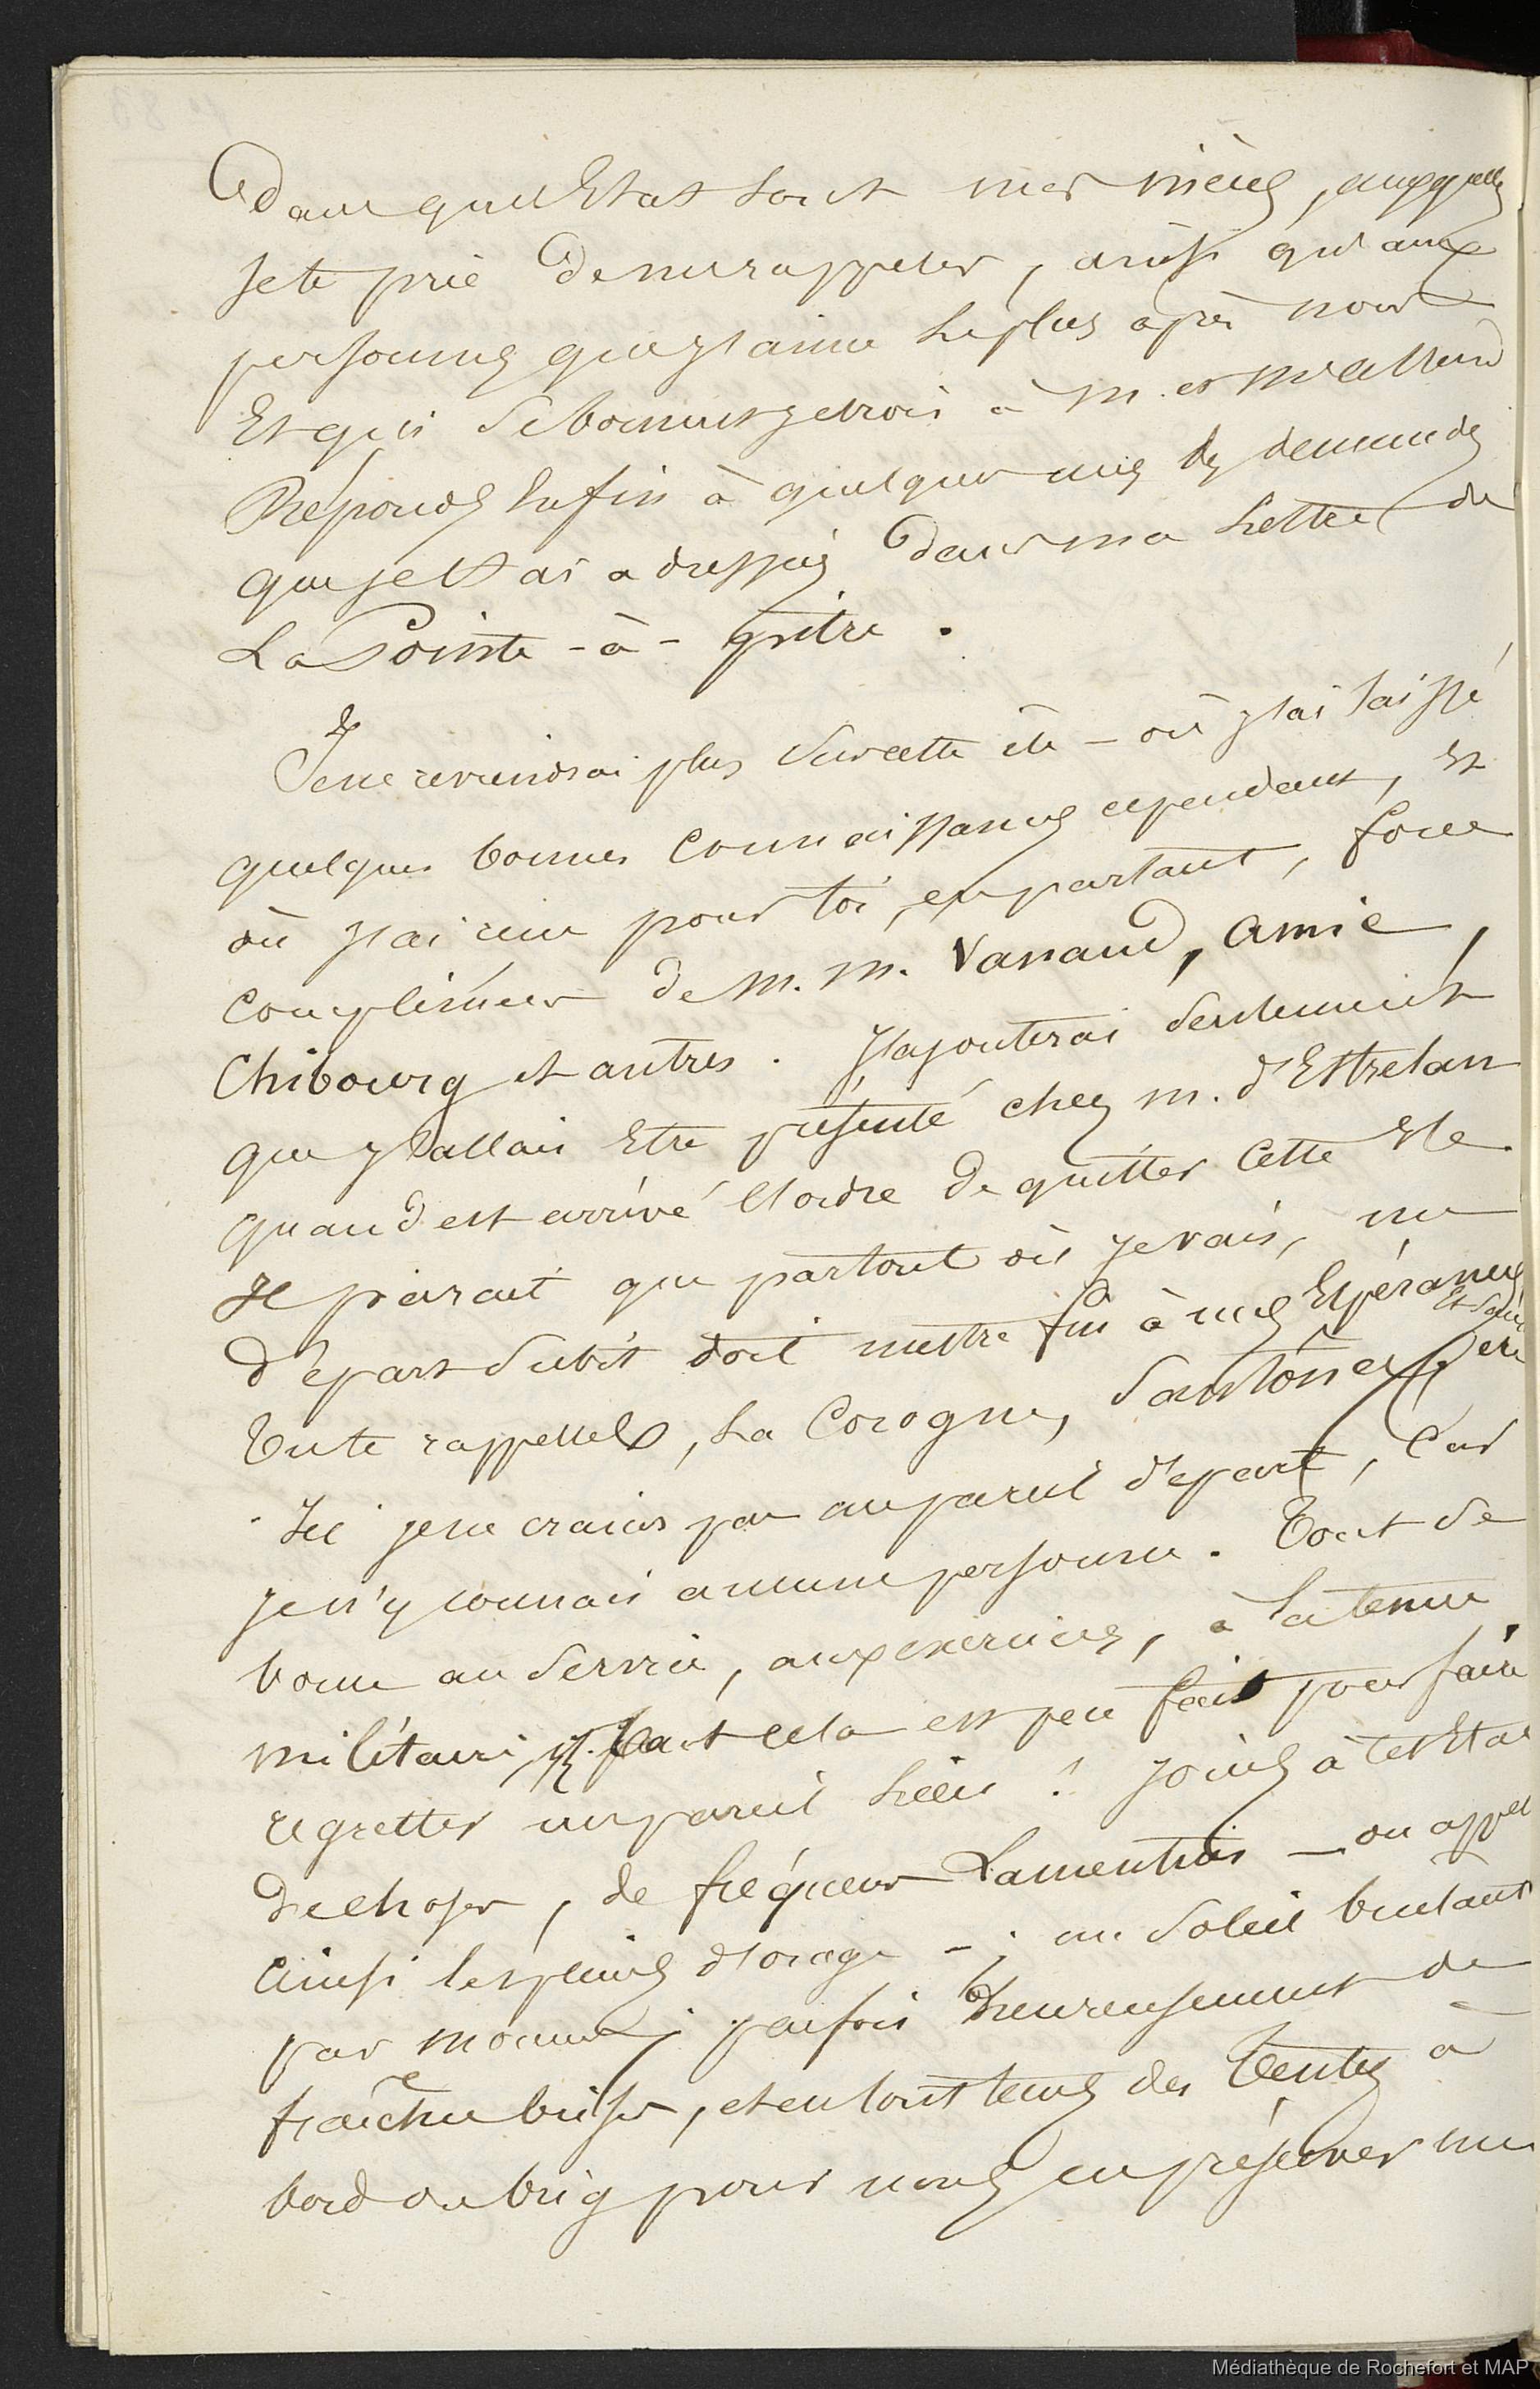 dans quel Etat sont mes nièces, auxquelles
je te prie de me rappeler, ainsi qu'aux
personnes que j'aime le plus après nous
Et qui se bornent je crois à M. et
Réponds Enfin à quelques unes des demandes
que je t'ai adressées dans ma Lettre de
La Pointe-à-pitre.
Je ne reviendrai plus sur cette île – où j'ai laissé
quelques bonnes Connaissances cependant, Et
où j'ai reçu pour toi, en partant, force
Complimens de M. M. Vanaud, Amic,
Chibourg et autres. J'ajouterai seulement
que j'allais Etre présenté chez M. d'Estrelan
quand est arrivé l'ordre de quitter Cette Ile.
Il paraît que partout où je vais, un
départ subit doit mettre fin à mes Espérances
Tu te rappelles, La Corogne, Santona Et
Ici je ne crains pas un pareil départ, Car
je n'y connais aucune personne. Tout se
borne au Service, aux exercices, à la tenue
militaire, Et tout cela est peu fait pour faire
regretter un pareil Lieu! Joins à cet Etat
de choses, de fréquens Lamentins – on appel
Ainsi les pluies d'orage –; un Soleil brulant
par momens; parfois heureusement de
fraîches brises, et en tout tems des Tentes à
bord du brig pour nous en préserver un